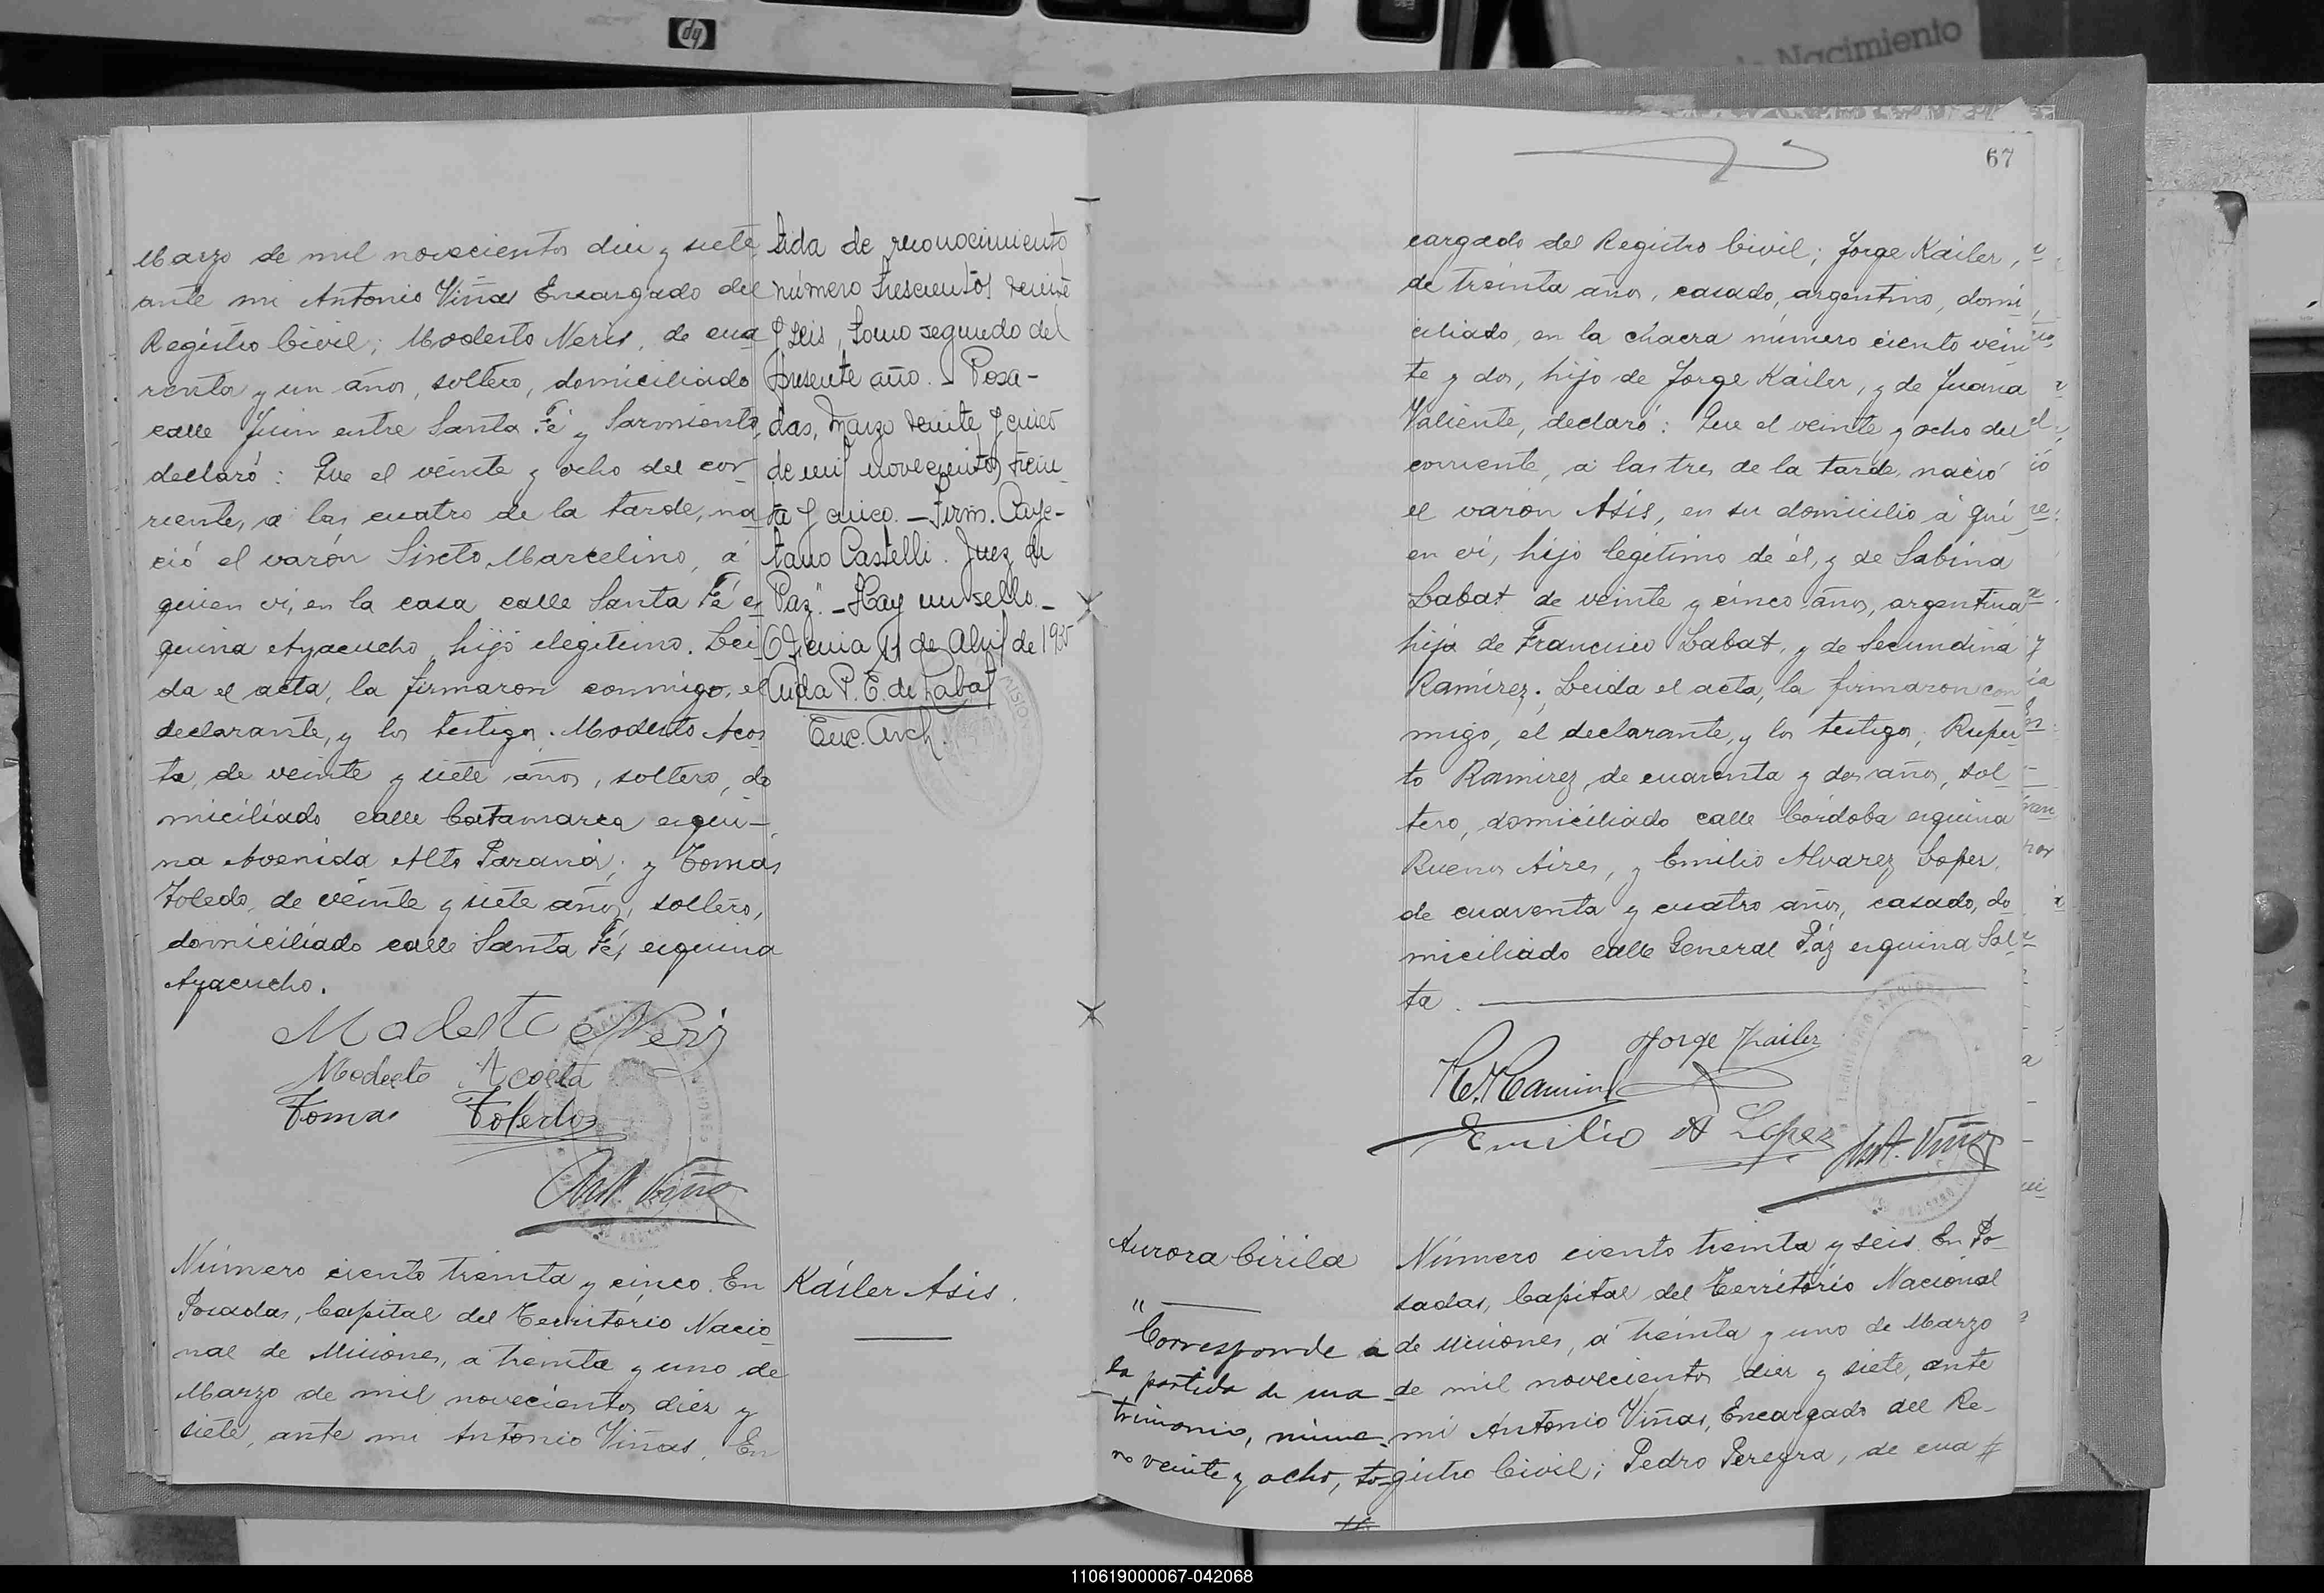 hp
de Nacimiento
Marzo de mil novecientos diez y siete,
ante mi Antonio Viñas Encargado del
Registro Civil; Modesto Neris, de cua
renta y un años, soltero, domiciliado
calle Junin entre Santa Fé y Sarmiento,
declaró: Que el veinte y ocho del cor-
riente, a las cuatro de la tarde, na
ció el varón Sixto Marcelino, á
quien vi, en la casa calle Santa Fé es
quina Ayacucho, hijo ilegitimo. Lei
da el acta, la firmaron conmigo, el
declarante, y los testigos: Modesto Acos
ta, de veinte y siete años, soltero, do
miciliado calle Catamarca esqui-
na Avenida Alto Paraná; y Tomás
Toledo, de veinte y siete años, soltero,
domiciliado calle Santa Fé, esquina
Ayacucho.
Modesto Neris
Modesto Acosta
Tomas Toledo
Ant. Viñas
Número ciento treinta y cinco. En
Posadas, Capital del Territorio Nacio
nal de Misiones, a treinta y uno de
Marzo de mil novecientos diez y
siete, ante mi Antonio Viñas, En
tida de reconocimiento
número trescientos veinte
y seis, tomo segundo del
presente año. - Posa-
das, Marzo veinte y cinco
de mil novecientos trein-
ta y cinco. - Firm. Caye-
tano Castelli. Juez de
Paz". - Hay un sello. -
Oficina 11 de Abril de 1935
Aida P. E. de Labat
Enc. Arch.
Káiler Asis.
67
cargado del Registro Civil; Jorge Káiler,
de treinta años, casado, argentino, domi
ciliado, en la chacra número ciento vein
te y dos, hijo de Jorge Kailer, y de Juana
Valiente, declaró: Que el veinte y ocho del
corriente, a las tres de la tarde, nació
el varón Asis, en su domicilio á qui
en vi, hijo legitimo de él, y de Sabina
Labat de veinte y cinco años, argentina
hija de Francisco Labat, y de Secundina
Ramirez. Leida el acta, la firmaron con
migo, el declarante, y los testigos; Ruper
to Ramirez, de cuarenta y dos años, sol
tero, domiciliado calle Córdoba esquina
Buenos Aires, y Emilio Alvarez Lopez,
de cuarenta y cuatro años, casado, do
miciliado calle General Páz esquina Sal
ta.
Jorge Kailer
Emilio A Lopez
Ant. Viñas
Aurora Cirila
"
Corresponde a
la partida de ma-
trimonio, núme-
ro veinte y ocho, to-
Número ciento treinta y seis. En Po
sadas, Capital del Territorio Nacional
de Misiones, á treinta y uno de Marzo
de mil novecientos diez y siete, ante
mi Antonio Viñas, Encargado del Re-
gistro Civil; Pedro Pereyra, de cua
110619000067-042068